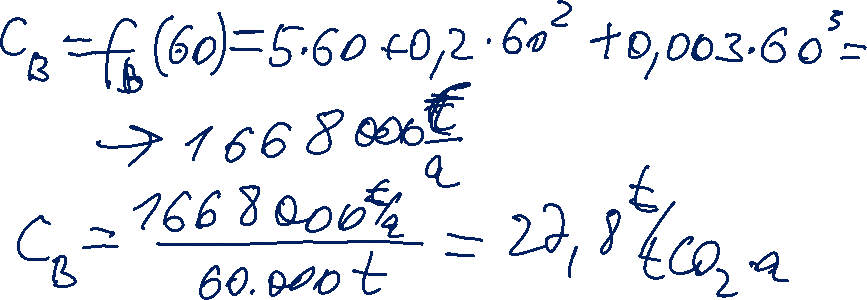 C_B = f_B(60) = 5·60 + 0,2·60² + 0,003·60³ =
→ 1668000 €/a
C_B = 1668000 €/a / 60.000 t = 27,8 €/tCO₂·a